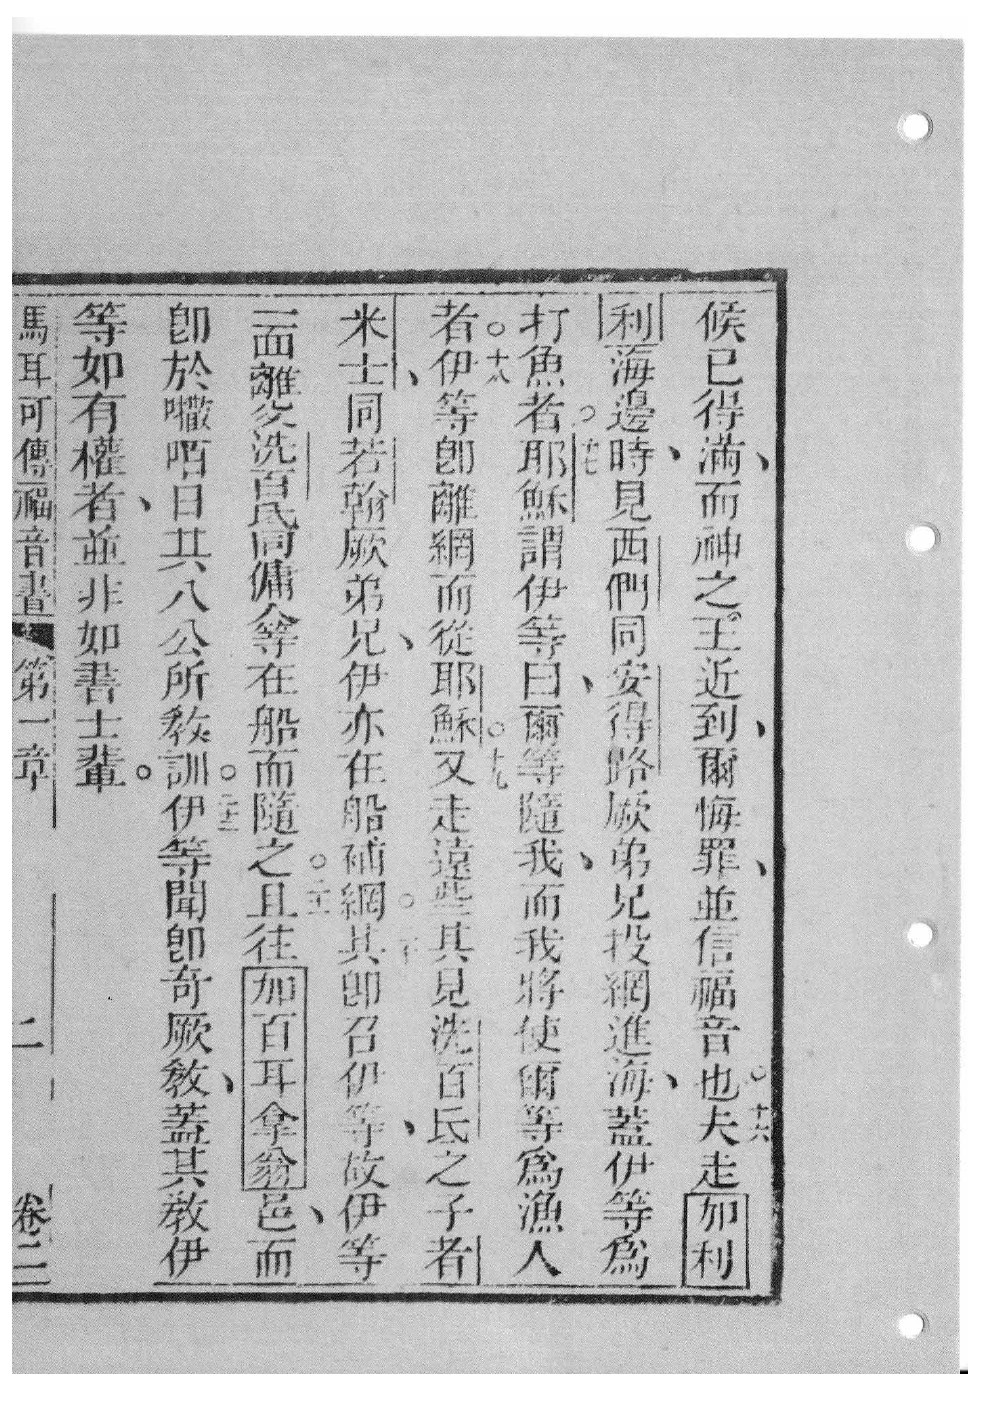 候已得滿、而神之王近到、爾悔罪、並信福音也。十六夫走加利
利海邊、時見西們同安得路厥弟兄投網進海、蓋伊等爲
打魚者。十七耶穌謂伊等曰、爾等隨我、而我將使爾等爲漁人
者。十八伊等卽離網而從耶穌。十九又走遠些其見洗百氏之子者
米士、同若翰厥弟兄、伊亦在船補網。二十其卽召伊等、故伊等
一面離父洗百氏同傭人等在船而隨之。二一且往加百耳拿翁邑、而
卽於㘔咟日共入公所敎訓。二二伊等聞卽奇厥敎、蓋其敎伊
等如有權者、並非如書士輩。
馬耳可傳福音書 第一章 二 卷二